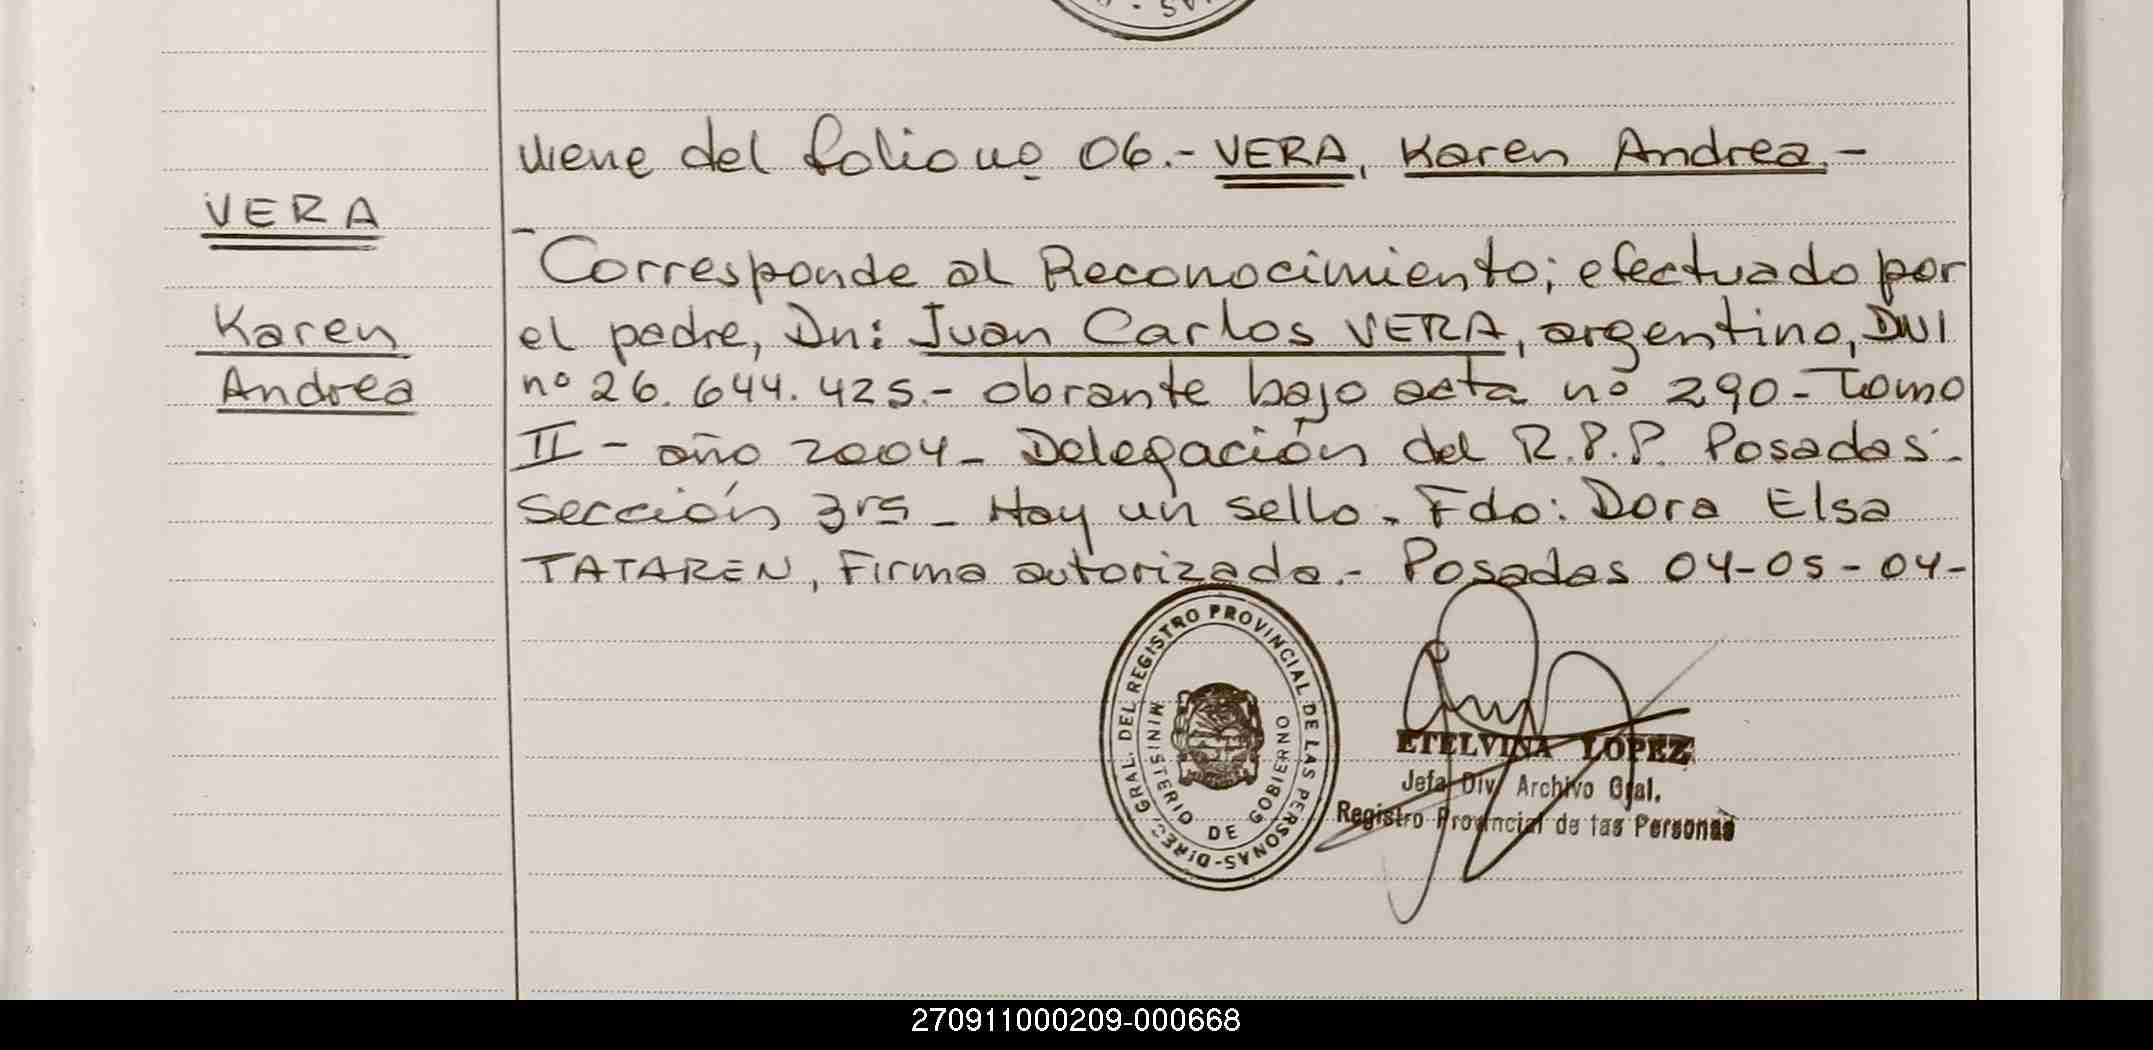 Viene del folio nº 06.- VERA, Karen Andrea.-
VERA
Karen
Andrea
- Corresponde al Reconocimiento; efectuado por
el padre, Dn: Juan Carlos VERA, argentino, DNI
nº 26.644.425.- obrante bajo acta nº 290- Tomo
II - año 2004- Delegación del R.P.P. Posadas-
Sección 3ra - Hay un sello. Fdo: Dora Elsa
TATAREN, Firma autorizada.- Posadas 04-05-04-
DIREC. GRAL. DEL REGISTRO PROVINCIAL DE LAS PERSONAS-
MINISTERIO DE GOBIERNO
ETELVINA LOPEZ
Jefa Div. Archivo Gral.
Registro Provincial de las Personas
270911000209-000668